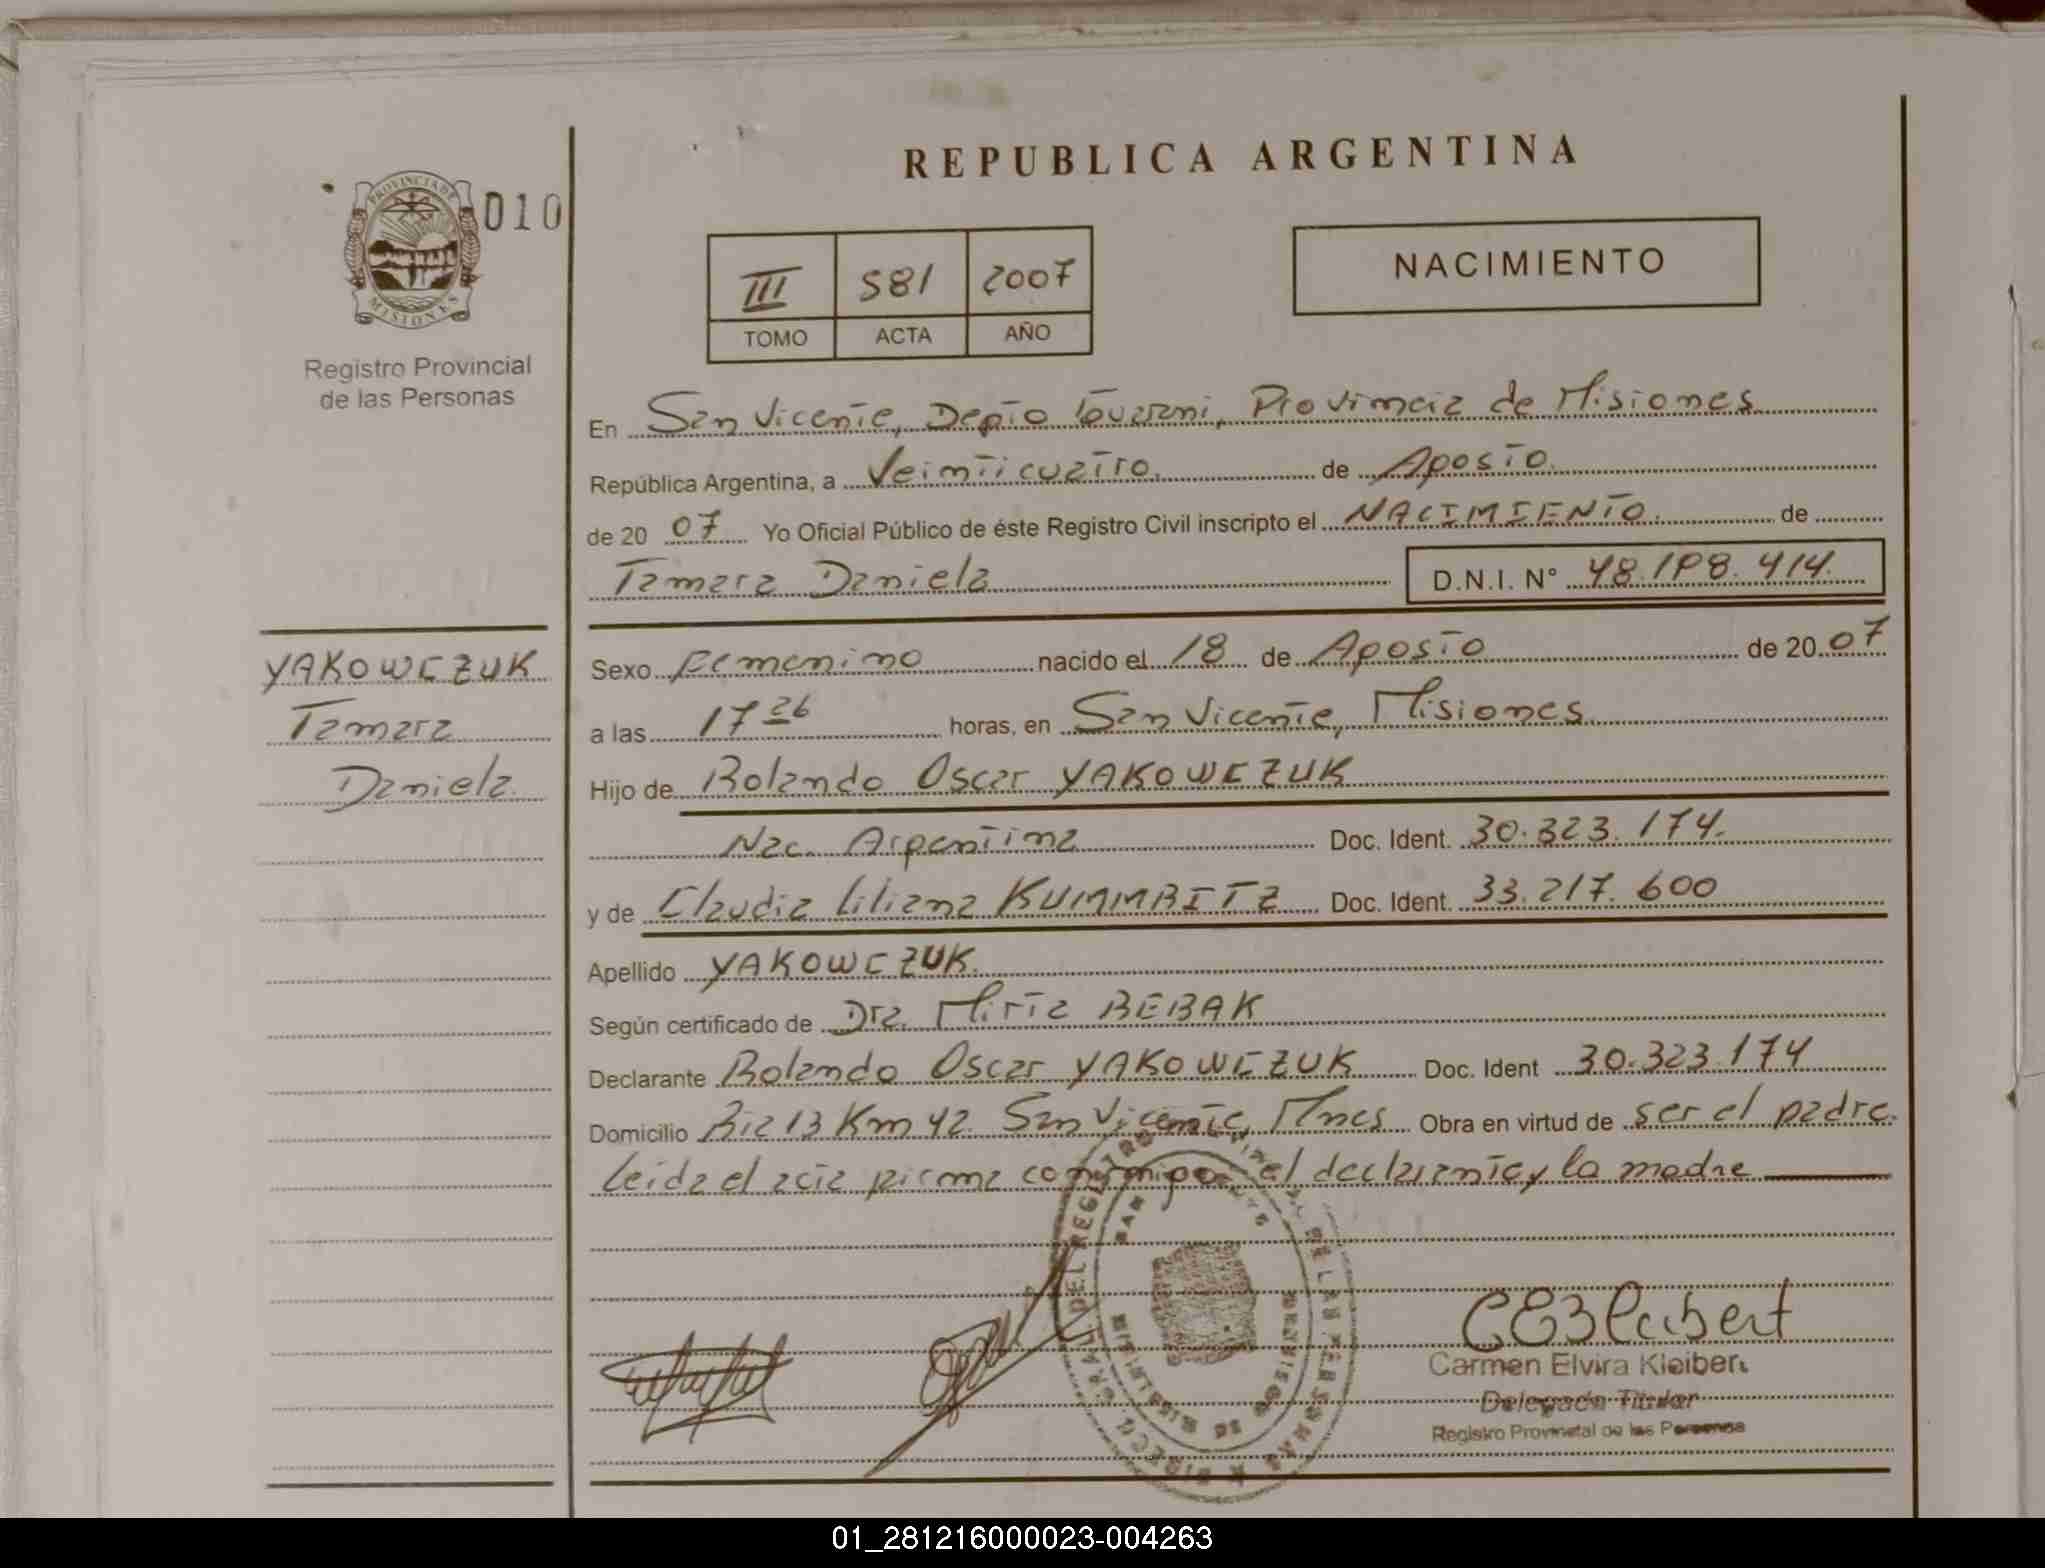 REPUBLICA ARGENTINA
PROVINCIA DE
MISIONES
010
Registro Provincial
de las Personas
III 581 2007
TOMO ACTA AÑO
NACIMIENTO
En San Vicente, Depto Guaraní, Provincia de Misiones
República Argentina, a Veinticuatro. de Agosto.
de 2007 Yo Oficial Público de éste Registro Civil inscripto el NACIMIENTO. de
Tamara Daniela D.N.I. N° 48.198.414.
YAKOWCZUK
Tamara
Daniela.
Sexo Femenino nacido el 18 de Agosto de 2007
a las 17 26 horas, en San Vicente, Misiones
Hijo de Rolando Oscar YAKOWCZUK
Nac. Argentina Doc. Ident. 30.323.174.
y de Claudia Liliana KUMMRITZ Doc. Ident. 33.217.600
Apellido YAKOWCZUK.
Según certificado de Dra. Mirta BEBAK
Declarante Rolando Oscar YAKOWCZUK Doc. Ident 30.323.174
Domicilio Rta 13 Km 42. San Vicente, Mnes Obra en virtud de ser el padre.
Leida el acta firma conmigo el declarante y la madre
CEKleibert
Carmen Elvira Kleibert
Delegada Titular
Registro Provincial de las Personas
01_281216000023-004263